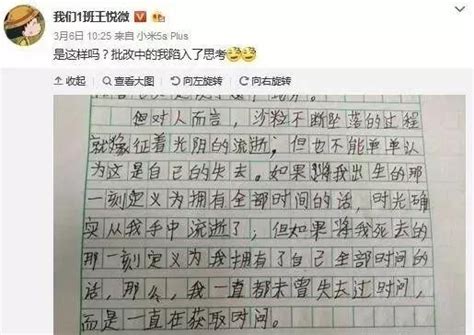 我们1班王悦微
3月6日 10:25 来自 小米5s Plus
是这样吗？批改中的我陷入了思考
收起 查看大图 向左旋转 向右旋转
但对人而言，沙粒不断坠落的过程
就象征着光阴的流逝；但也不能单单认
为这是自己的失去。如果将我出生的那
一刻定义为拥有全部时间的话，时光确
实从我手中流逝了，但如果将我死去的
那一刻定义为我拥有了自己全部时间的
话，那么，我一直都未曾失去过时间，
而是一直在获取时间。